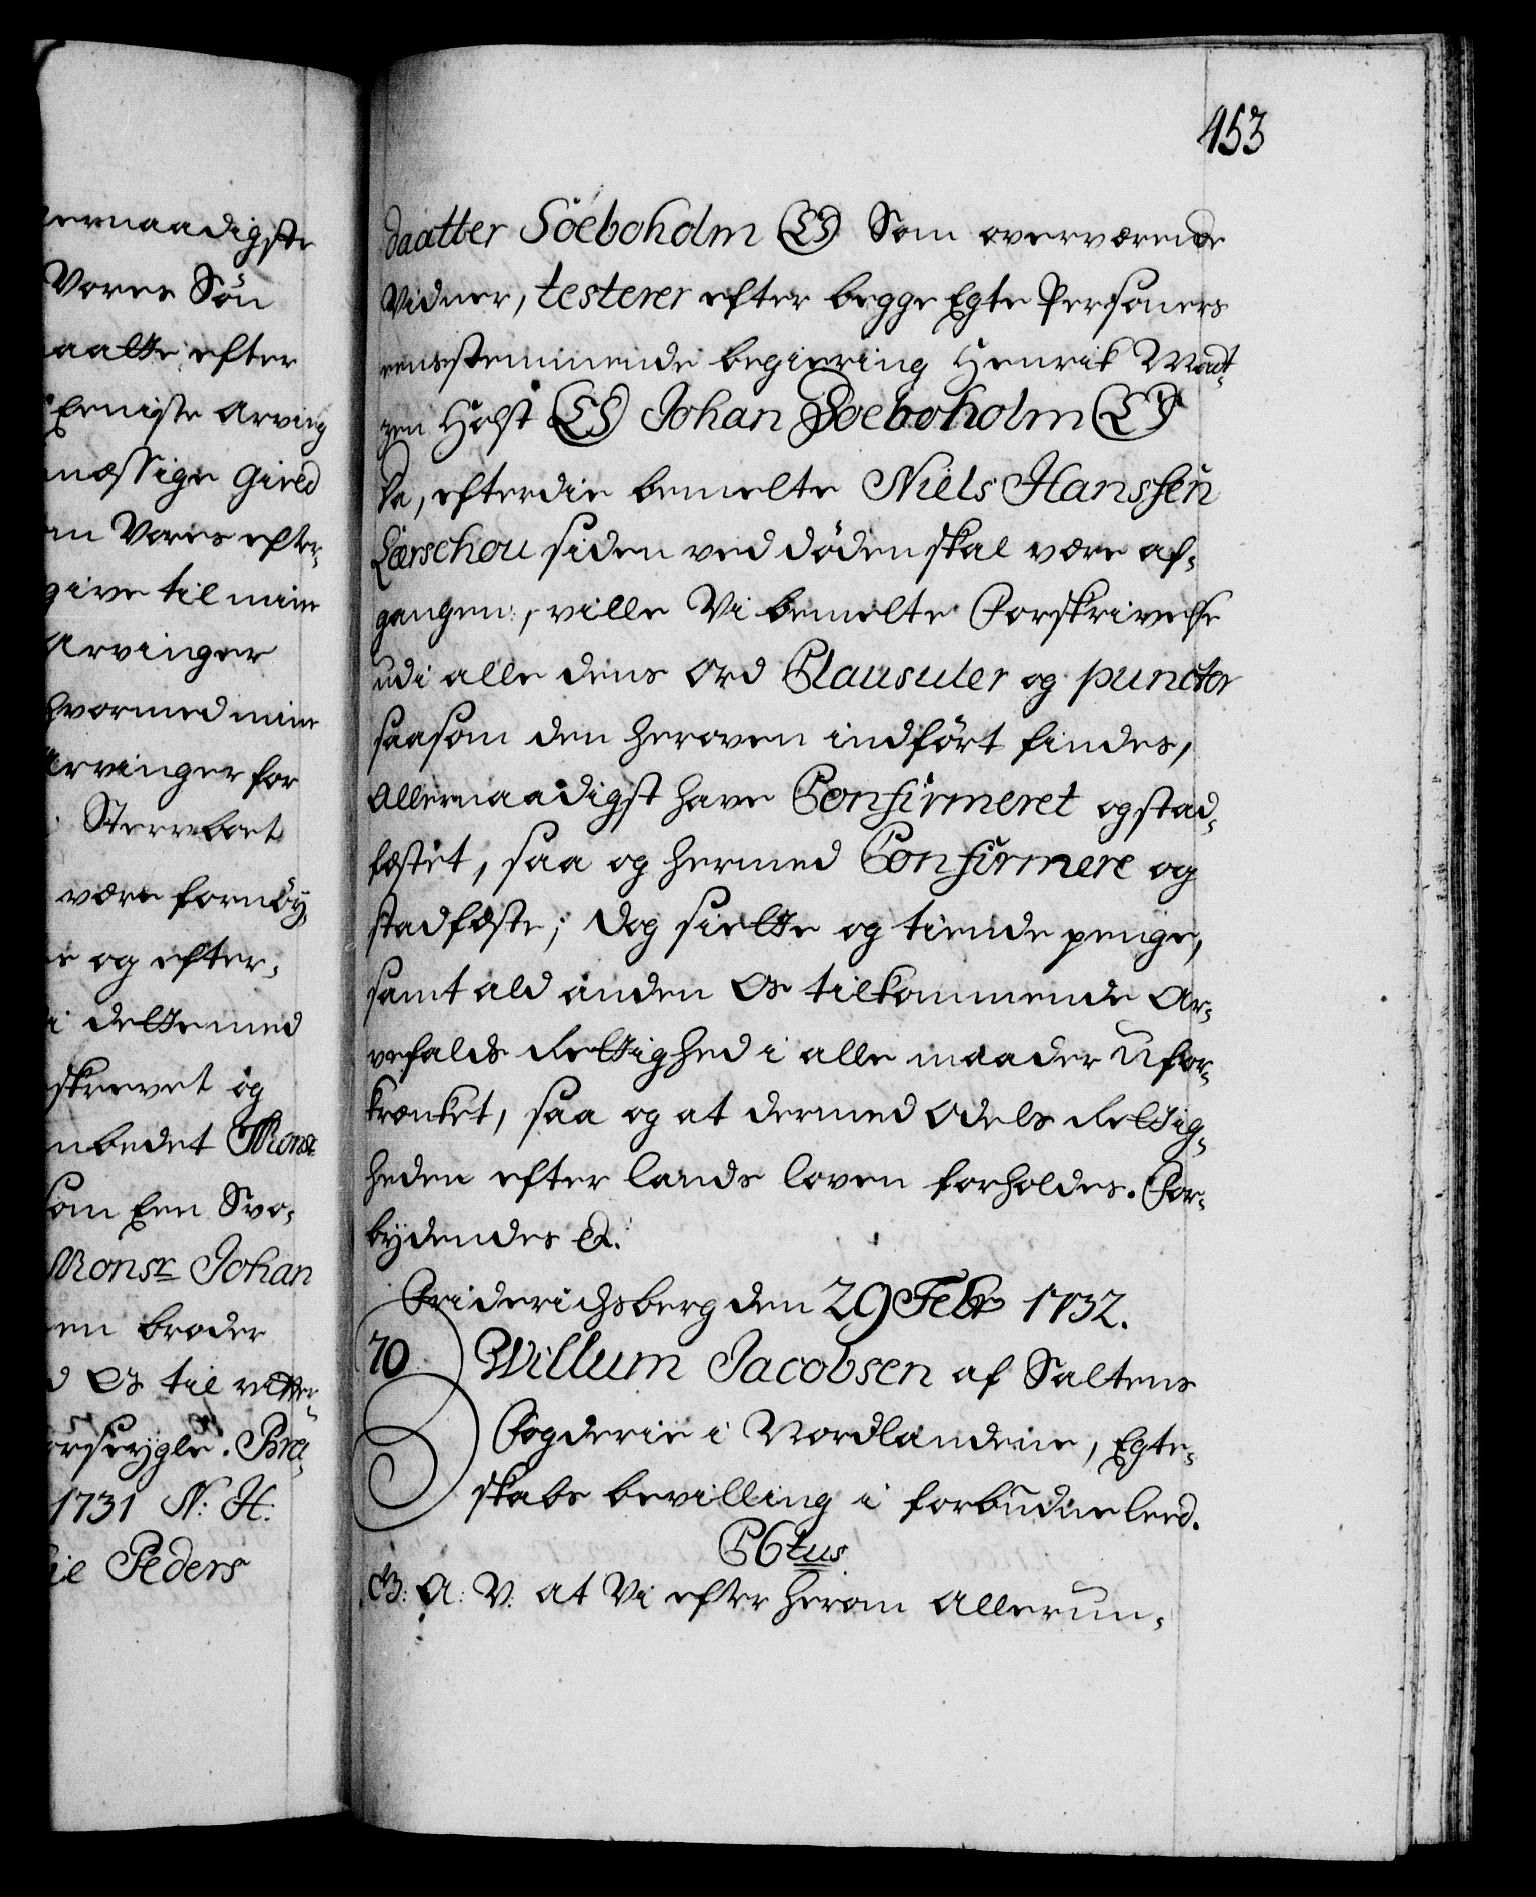 453
ernaadigste
Vores Søn
aatte, efter
Eeniste Arving
mæssige Gived
m Vores efter-
give til min
Arvinger
hvormed min
Arvinger for
Sterwboet
være fornøy,
e og efter-
i dette med
skrevet og
nbedet Monsr
som Een Svo-
Monsr Johan
en broder
d Os til vitter-
orseygle. Bra-
1731 N: H:
ie Peders
daatter Söeboholm (LS) Som overværende
Vidner, testerer efter begge Egte Personers
eensstemmende begiering Henrik Mat-
zen Holst (LS) Johan Soeboholm (LS)
Da, efterdie bemelte Niels Hanssen
Lærschou siden ved døden skal være af-
gangen:, ville Vi bemelte Forskrivelse
udi alle dens Ord Clausuler og puncter
saasom den heroven indført findes,
Allernaadigst have Confirmeret og stad-
fæstet, saa og hermed Confirmere og
stadfæste; dog siette og tiende penge,
samt ald anden Os tilkommende Ar-
vefalds Rettighed i alle maader Ufor-
krænket, saa og at dermed Odels Rettig-
heden efter lands loven forholdes. For-
bydendes &.
Friderichsberg den 29 Febr 1732.
70 Willum Jacobsen af Saltens
Fogderie i Nordlandene, Egte-
skabs bevilling i forbudne leed.
C6tus
G: A: V: at Vi efter herom Allerun-